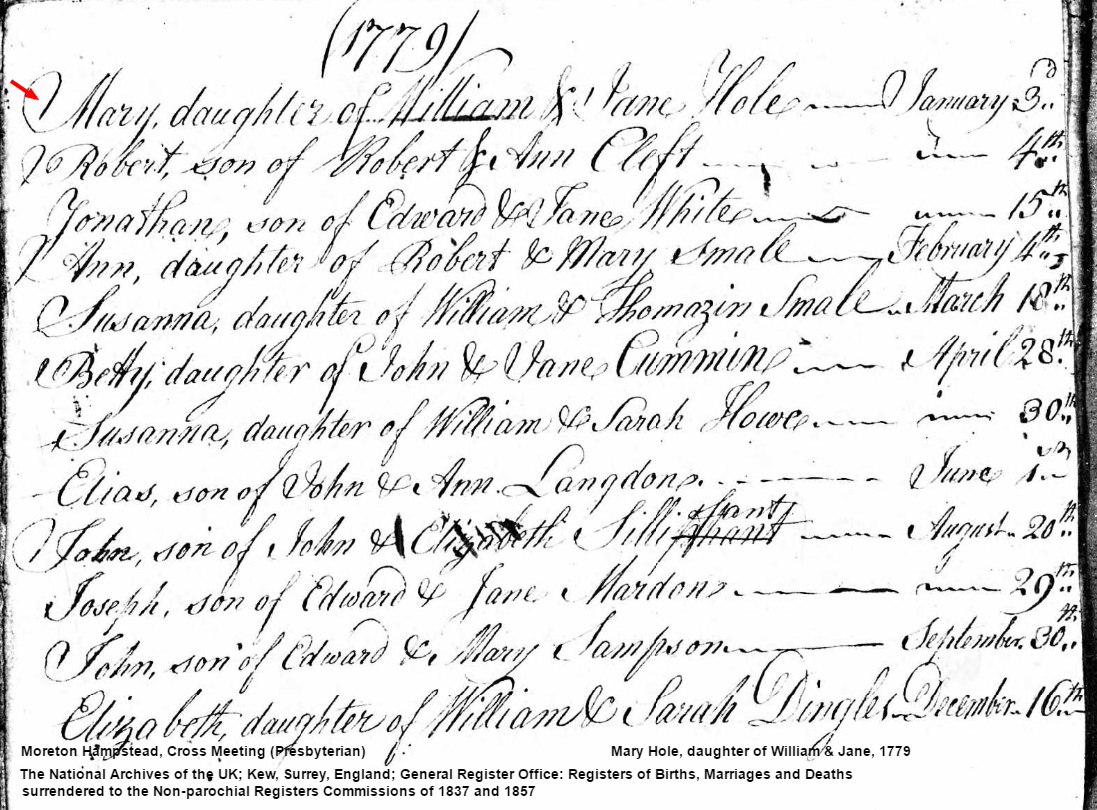 (1779)
Mary, daughter of William & Jane Hole January 3rd
Robert, son of Robert & Ann Cleft 4th
Jonathan, son of Edward & Jane White 15th
Ann, daughter of Robert & Mary Smale February 4th
Susanna, daughter of William & Thomazin Smale March 18th
Betty, daughter of John & Jane Cummin April 28th
Susanna, daughter of William & Sarah Howe 30th
Elias, son of John & Ann Langdon June 1st
John, son of John & Elizabeth Silliphant August 20th
Joseph, son of Edward & Jane Mardon 29th
John, son of Edward & Mary Sampson September 30th
Elizabeth, daughter of William & Sarah Dingle December 16th
Moreton Hampstead, Cross Meeting (Presbyterian) Mary Hole, daughter of William & Jane, 1779
The National Archives of the UK; Kew, Surrey, England; General Register Office: Registers of Births, Marriages and Deaths
surrendered to the Non-parochial Registers Commissions of 1837 and 1857